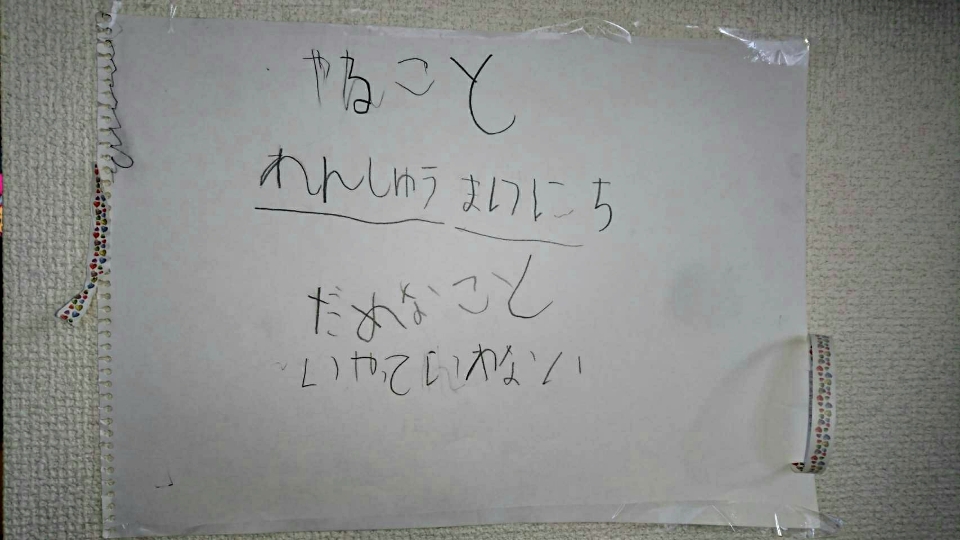 やること
れんしゅう まいにち
だめなこと
いやっていわない